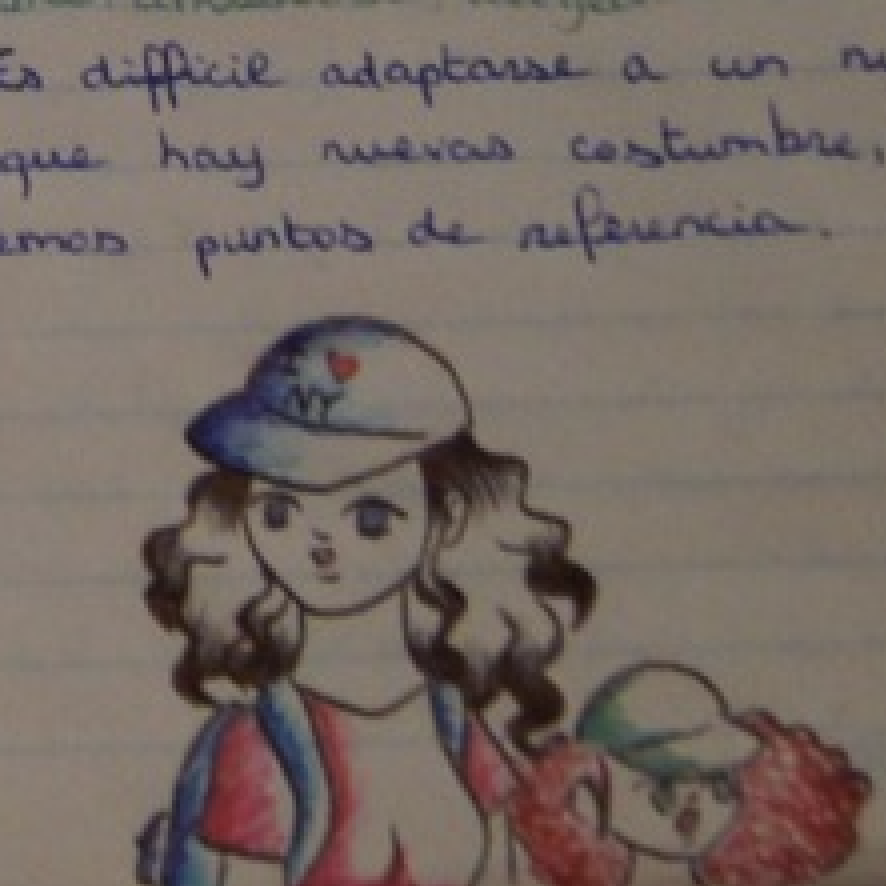 Es difficil adaptarse a un
que hay nuevas costumbre,
emos puntos de referencia.
I ♥
NY